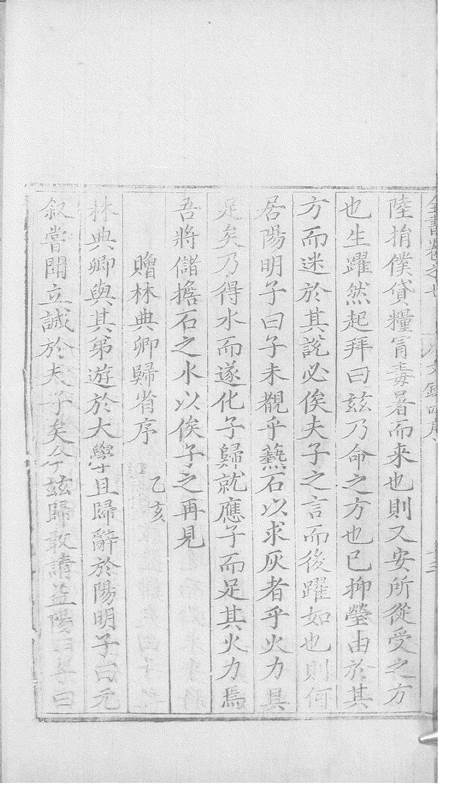 全書卷之七　文錄四序　十三
陸捐僕貸糧冐毒暑而來也則又安所從受之方
也生躍然起拜曰兹乃命之方也已抑瑩由於其
方而迷於其說必俟夫子之言而後躍如也則何
居陽明子曰子未觀乎爇石以求灰者乎火力具
足矣乃得水而遂化子歸就應子而足其火力焉
吾將儲擔石之水以俟子之再見
贈林典卿歸省序　乙亥
林典卿與其弟遊於大學且歸辭於陽明子曰元
叙嘗聞立誠於夫子矣今兹歸敢請益陽明子曰